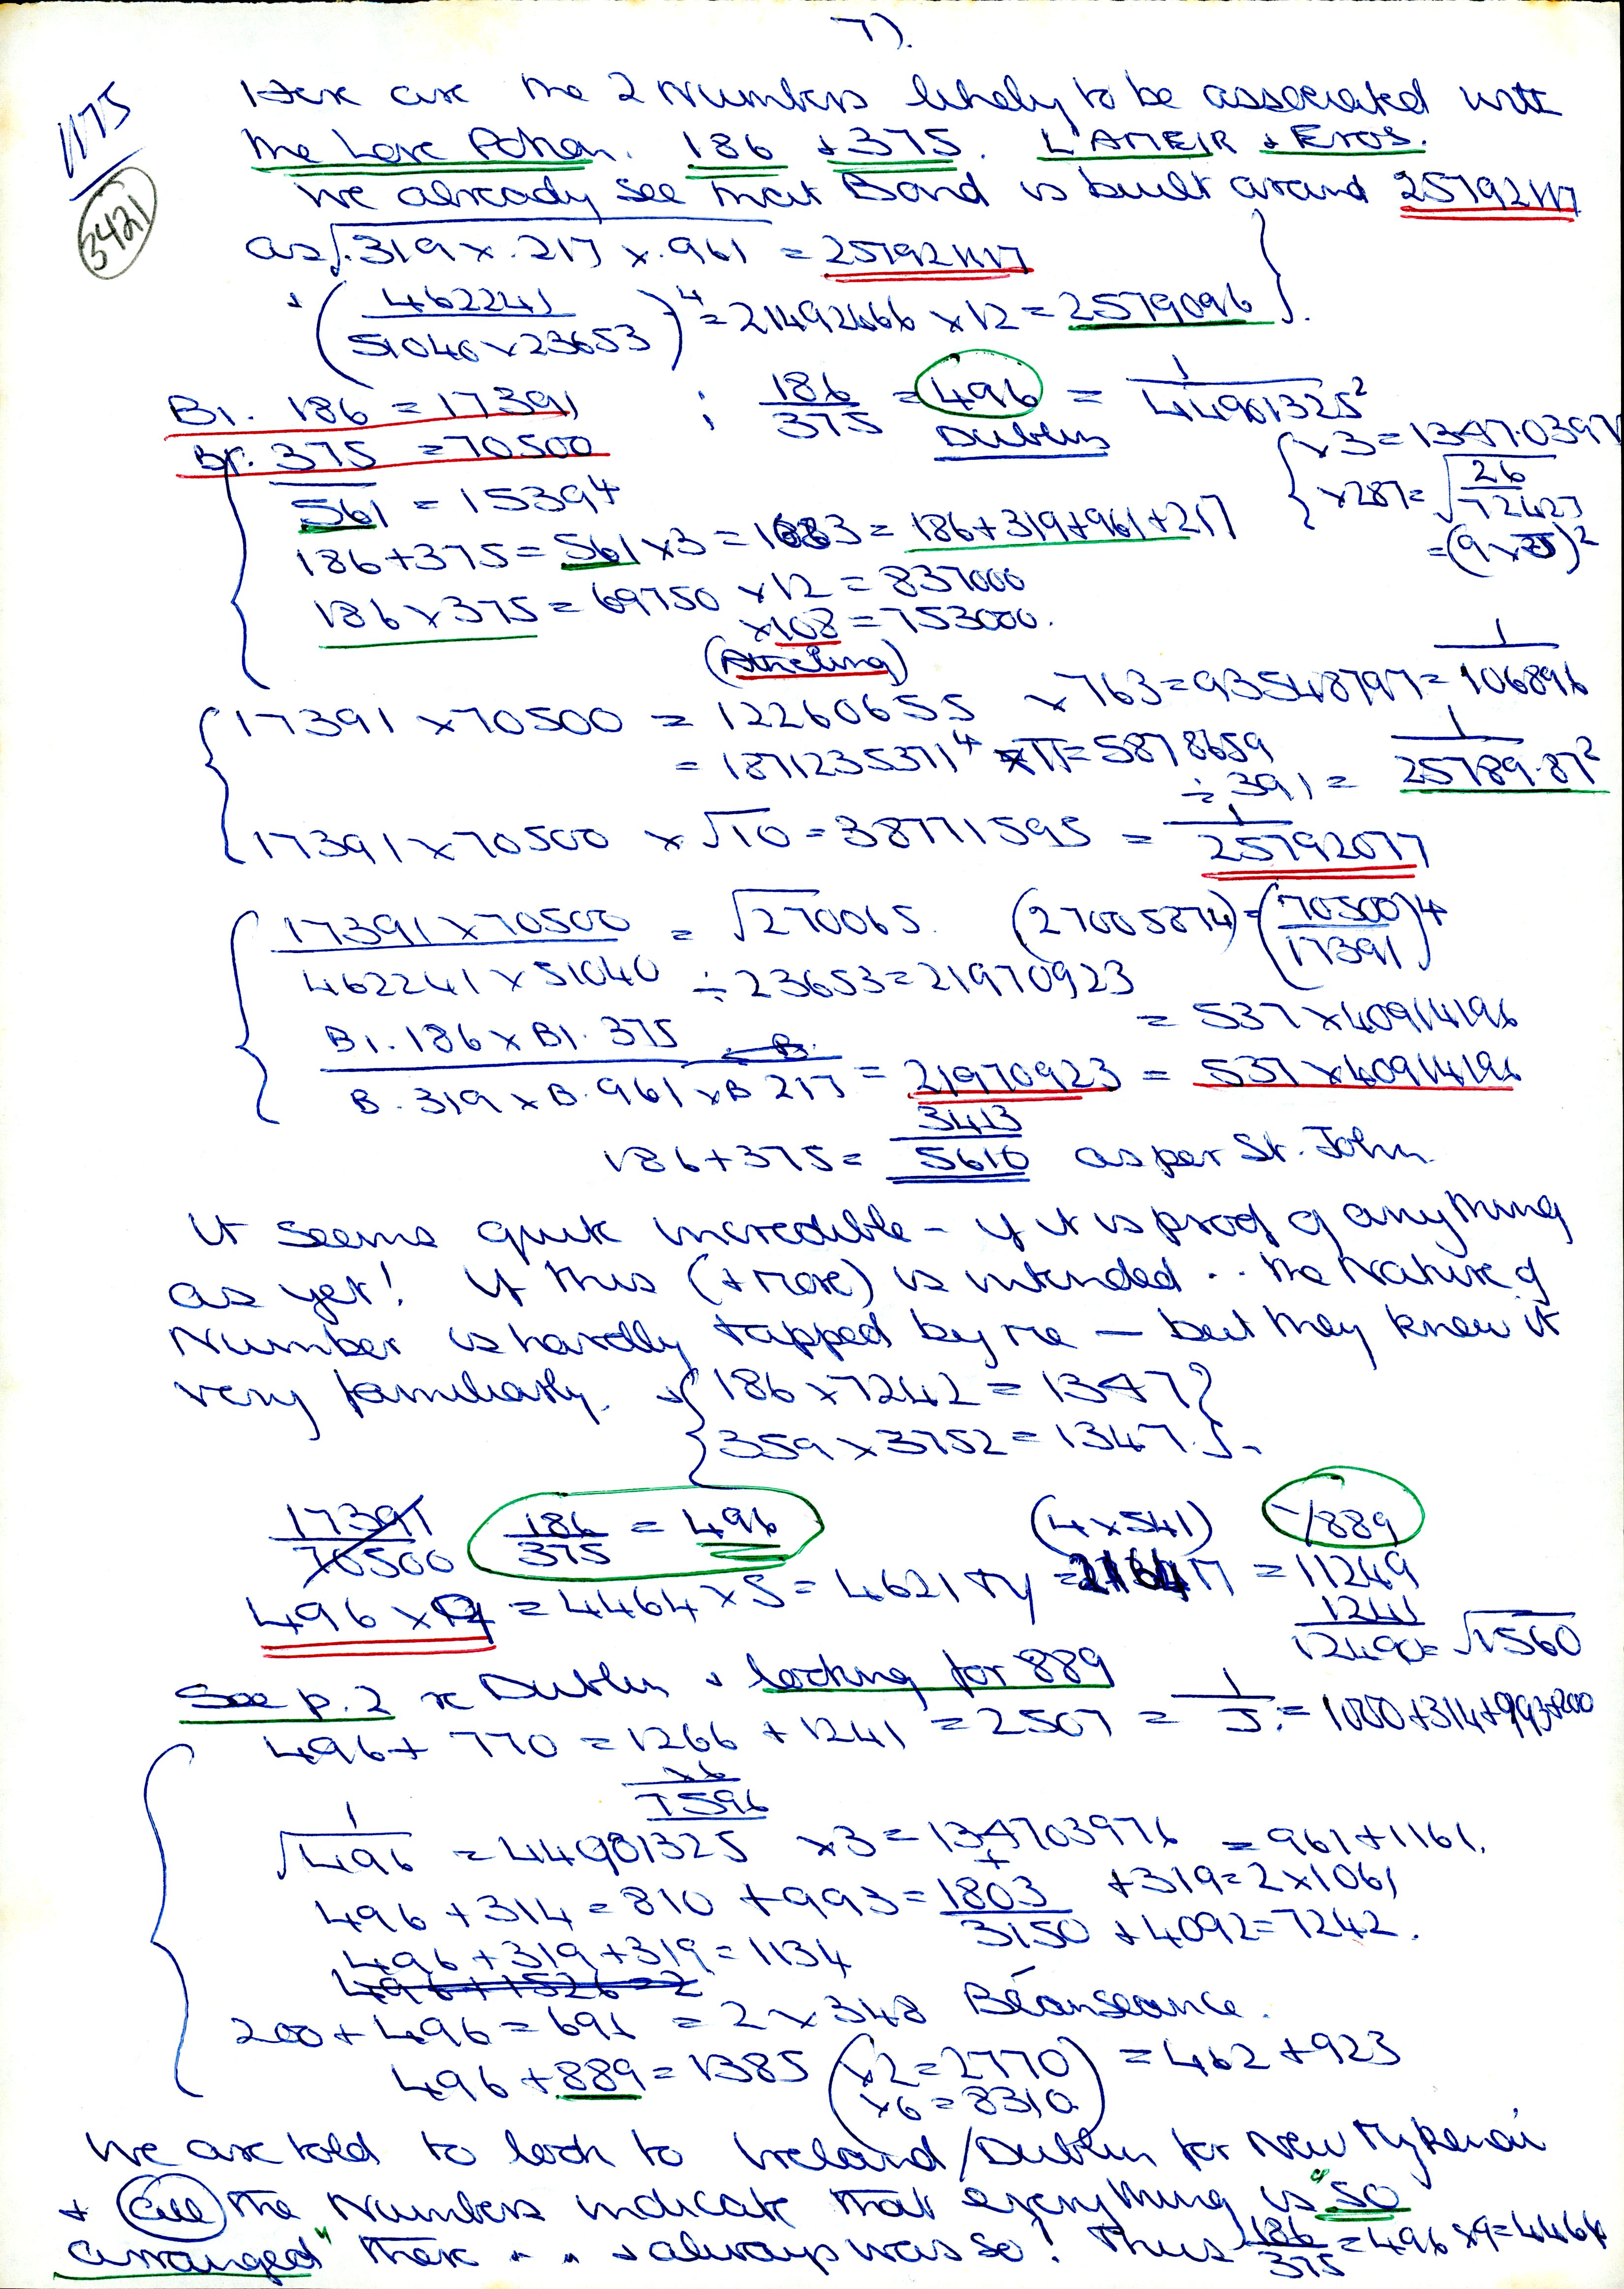 7).
1175
3421
Here are the 2 Numbers likely to be associated with
the Love Potion. 186 + 375. L'AMEIR + EROS.
We already see that Band is built around 25792117
as √.319 x .217 x .961 = 25792117
+ (462241 / 51040 x 23653)^4 = 21492466 x 12 = 2579096
B1. 186 = 17391 ; 186/375 = 496 = 1/44901325²
Dublin
Br. 375 = 70500
x3 = 1347.0397
x287 = √26/72427
561 = 15394
= (9 x 25)²
186 + 375 = 561 x 3 = 1683 = 186 + 319 + 961 + 217
186 x 375 = 69750 x 12 = 837000
x 108 = 753000.
(Atheling)
17391 x 70500 = 12260655 x 763 = 93548797 = 1/106896
= 1871235371^4 x π = 5878659
÷ 391 = 1/25789.87²
17391 x 70500 x √10 = 38771595 = 1/25792077
17391 x 70500 / 462241 x 51040 = √270065. (27005874) = (70500/17391)^4
÷ 23653 = 21970923
= 537 x 40914196
B1. 186 x B1. 375 / B. 319 x B. 961 x B 217 = 21970923 = 537 x 40914196
3413
186 + 375 = 5610 as per St. John.
It seems quite incredible - if it is proof of anything
as yet! If this (+ more) is intended .. the Nature of
Number is hardly tapped by me — but they knew it
very familiarly. + { 186 x 7242 = 1347 }
{ 359 x 3752 = 1347. }
17391/70500 186/375 = 496 (4 x 541) -/889
496 x 9 = 4464 x 5 = 4621 + y = 2164 π = 11249
1241
12490 = √1560
See p. 2 re Dublin + looking for 889
496 + 770 = 1266 + 1241 = 2507 = 1/J. = 1000 + 314 + 993 + 200
x6
7596
1/√496 = 44901325 x 3 = 134703976 = 961 + 1161.
496 + 314 = 810 + 993 = 1803 + 319 = 2 x 1061
3150 + 4092 = 7242.
496 + 319 + 319 = 1134
496 + 1526 = 2
200 + 496 = 696 = 2 x 348 Béanseance.
496 + 889 = 1385 (x2 = 2770) = 462 + 923
(x6 = 8310)
We are told to look to Ireland/Dublin for New Mykenai
+ all the Numbers indicate that everything is "so
arranged" there . . + always was so! Thus 186/375 = 496 x 9 = 4464